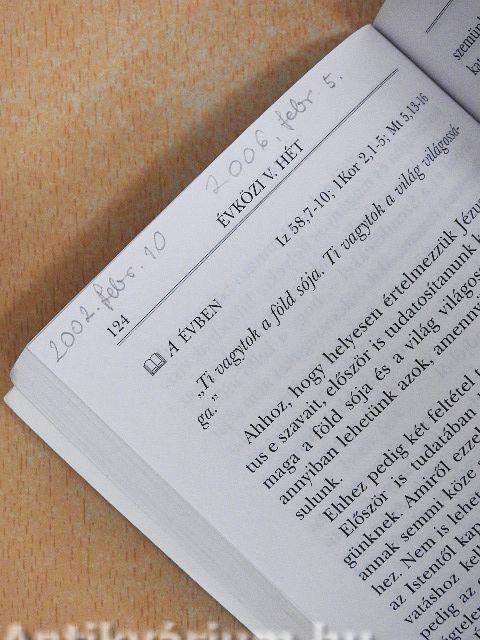 2002. febr. 10
2006, febr. 5.
124
ÉVKÖZI V. HÉT
A ÉVBEN
Iz 58,7-10; 1Kor 2,1-5; Mt 5,13-16
„Ti vagytok a föld sója. Ti vagytok a világ világossá-
ga.”
Ahhoz, hogy helyesen értelmezzük
tus e szavait, először is tudatosítanunk
maga a föld sója és a világ
annyiban lehetünk azok,
sulunk.
Ehhez pedig két feltétel
Először is tudatában
günknek. Amiről
annak semmi köze
hez. Nem is
az Istentől
vatáshoz
pedig az
szemün
Antikvárium.hu